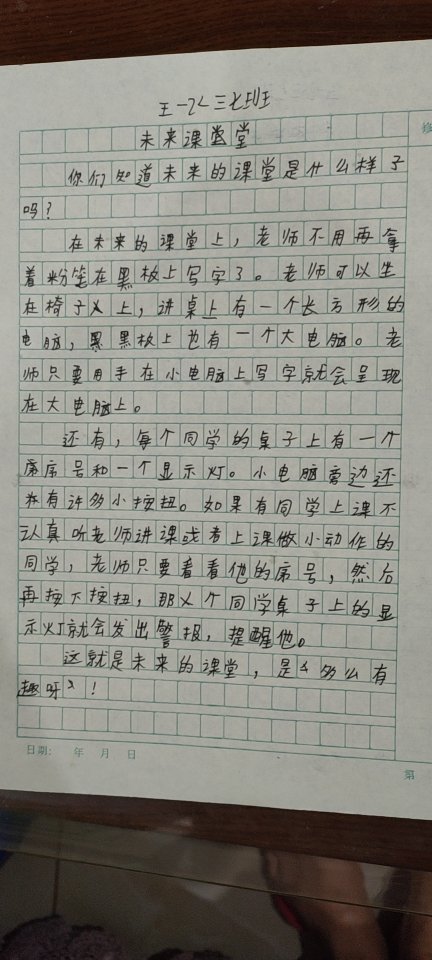 王一 三七班
未来课堂
你们知道未来的课堂是什么样子
吗？
在未来的课堂上，老师不用再拿
着粉笔在黑板上写字了。老师可以坐
在椅子上，讲桌上有一个长方形的
电脑，黑板上也有一个大电脑。老
师只要用手在小电脑上写字就会呈现
在大电脑上。
还有，每个同学的桌子上有一个
席号和一个显示灯。小电脑旁边还
有许多小按扭。如果有同学上课不
认真听老师讲课或者上课做小动作的
同学，老师只要看看他的席号，然后
再按下按扭，那个同学桌子上的显
示灯就会发出警报，提醒他。
这就是未来的课堂，是多么有
趣呀！
日期： 年 月 日
第